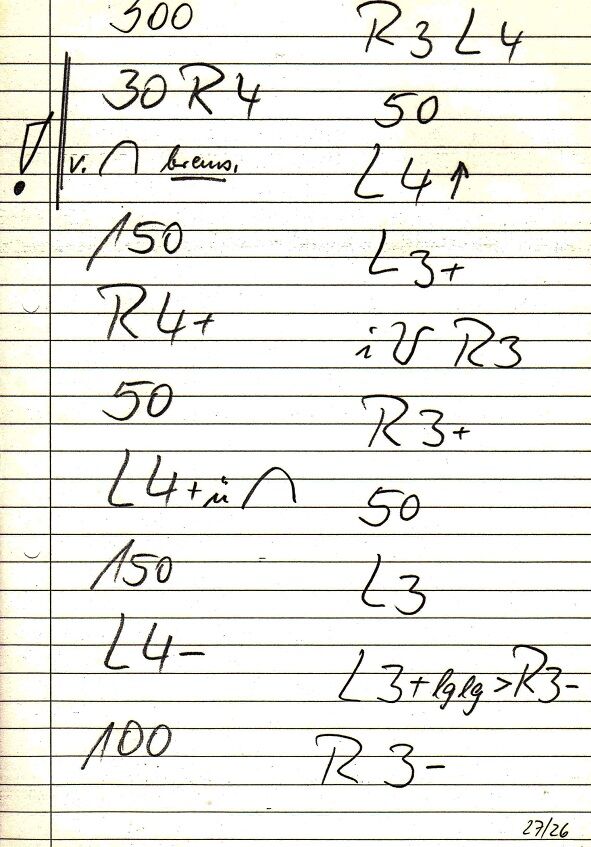 300
30 R4
! v. ∩ brems.
150
R4+
50
L4+ ü ∩
150
L4-
100
R3 L4
50
L4↑
L3+
i V R3
R3+
50
L3
L3+ lglg > R3-
R3-
27/26